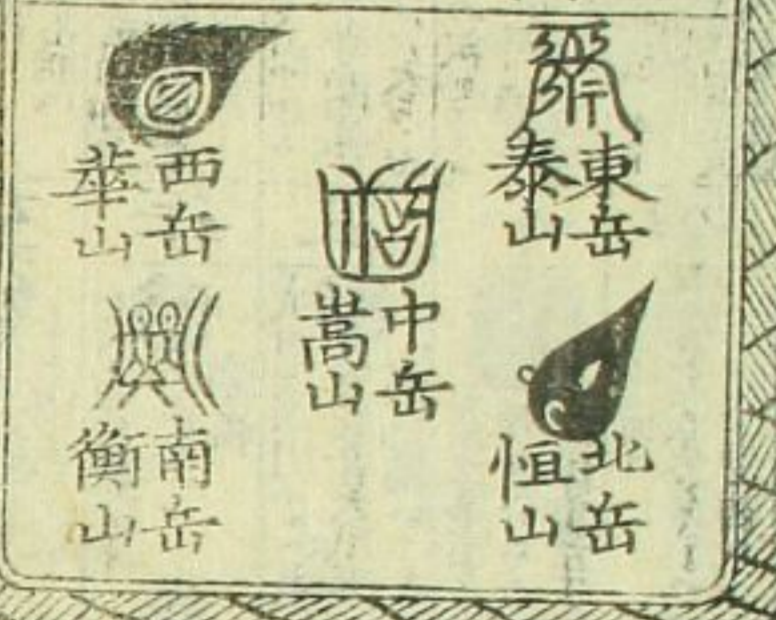 東岳
泰山
北岳
恒山
中岳
嵩山
西岳
華山
南岳
衡山